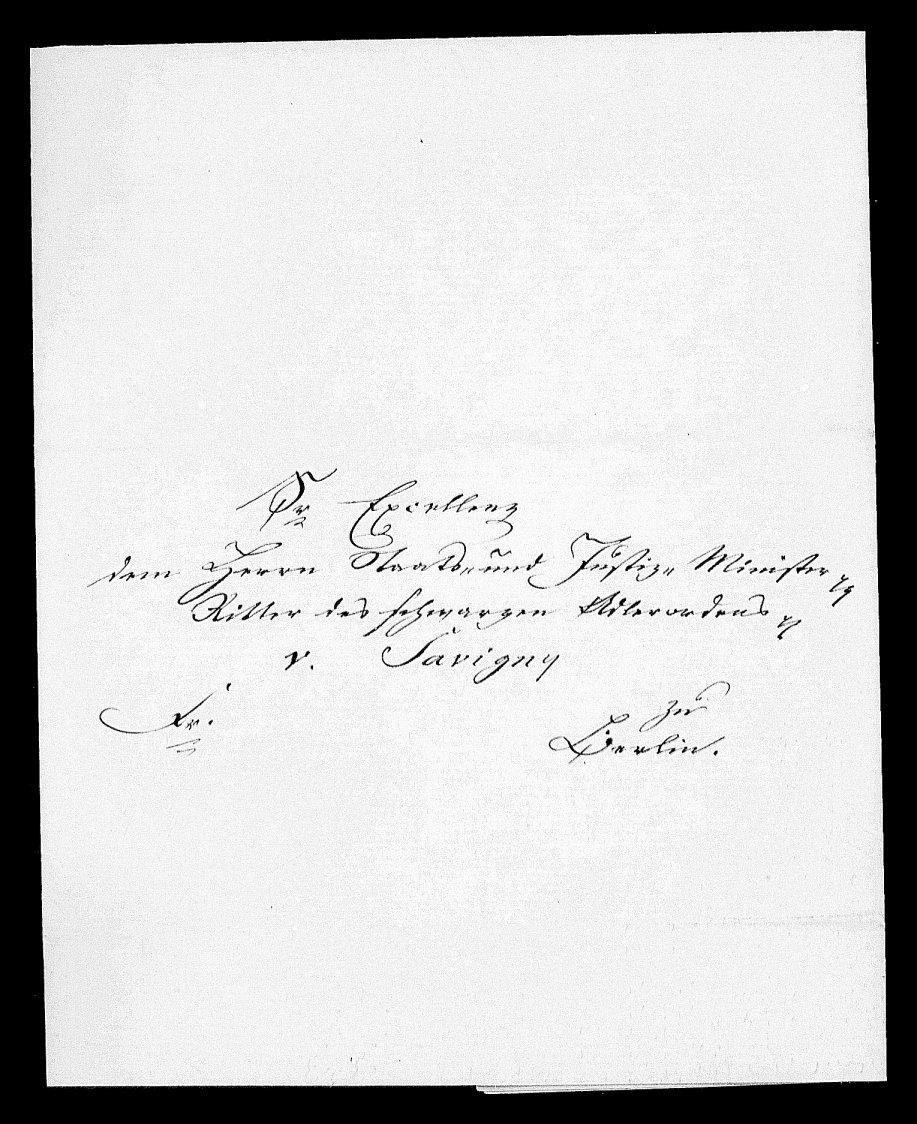 Sr Excellenz
dem Herrn Staats- und Justiz- Minister pp
Ritter des schwarzen Adlerordens pp
v. Savigny
Fr. zu
Berlin.